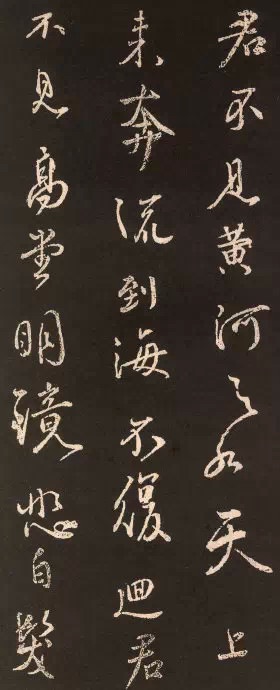 君不見黃河之水天上
来奔流到海不復迴君
不見高堂明鏡悲白髮